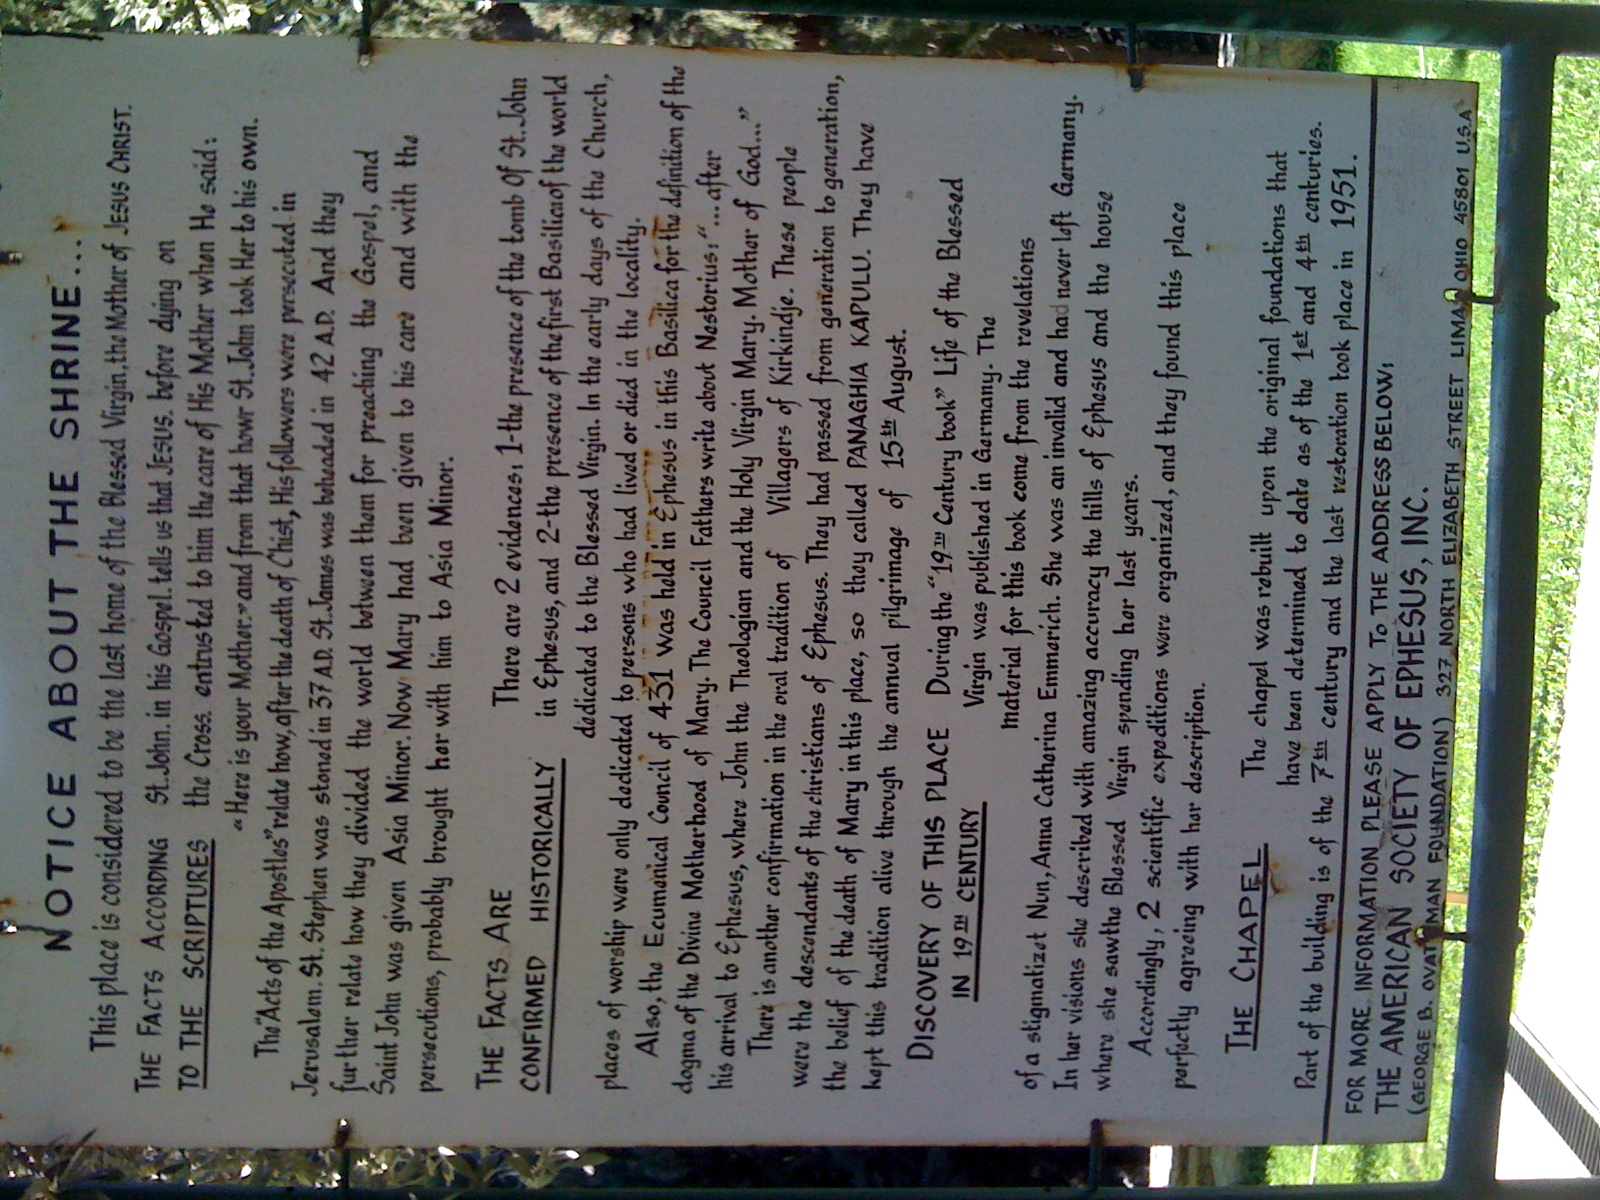 NOTICE ABOUT THE SHRINE...
This place is considered to be the last home of the Blessed Virgin, the Mother of JESUS CHRIST.
THE FACTS ACCORDING St. John. in his Gospel. tells us that JESUS. before dying on
TO THE SCRIPTURES the Cross. entrusted to him the care of His Mother when He said:
"Here is your Mother." and from that howr St. John took Her to his own.
The "Acts of the Apostles" relate how, after the death of Chist, His followers were persecuted in
Jerusalem. St. Stephen was stoned in 37 A.D. St. James was beheaded in 42 A.D. And they
further relate how they divided the world between them for preaching the Gospel, and
Saint John was given Asia Minor. Now Mary had been given to his care and with the
persecutions, probably brought her with him to Asia Minor.
THE FACTS ARE There are 2 evidences: 1-the presence of the tomb Of St. John
CONFIRMED HISTORICALLY in Ephesus, and 2-the presence of the first Basilica of the world
dedicated to the Blessed Virgin. In the early days of the Church,
places of worship were only dedicated to persons who had lived or died in the locality.
Also, the Ecumenical Council of 431 was held in Ephesus in this Basilica for the definition of the
dogma of the Divine Motherhood of Mary. The Council Fathers write about Nestorius: "... after
his arrival to Ephesus, where John the Theologian and the Holy Virgin Mary. Mother of God..."
There is another confirmation in the oral tradition of Villagers of Kirkindje. These people
were the descendants of the christians of Ephesus. They had passed from generation to generation,
the belief of the death of Mary in this place, so they called PANAGHIA KAPULU. They have
kept this tradition alive through the annual pilgrimage of 15th August.
DISCOVERY OF THIS PLACE During the "19TH Century book" Life of the Blessed
IN 19TH CENTURY Virgin was published in Germany. The
material for this book come from the revelations
of a stigmatizet Nun, Anna Catherina Emmerich. She was an invalid and had never left Germany.
In her visions she described with amazing accuracy the hills of Ephesus and the house
where she saw the Blessed Virgin spending her last years.
Accordingly, 2 scientific expeditions were organized, and they found this place
perfectly agreeing with her description.
THE CHAPEL The chapel was rebuilt upon the original foundations that
have been determined to date as of the 1st and 4th centuries.
Part of the building is of the 7th century and the last restoration took place in 1951.
FOR MORE INFORMATION PLEASE APPLY TO THE ADDRESS BELOW:
THE AMERICAN SOCIETY OF EPHESUS, INC.
(GEORGE B. FOUNDATION) 327 NORTH ELIZABETH STREET LIMA OHIO 45801 U.S.A